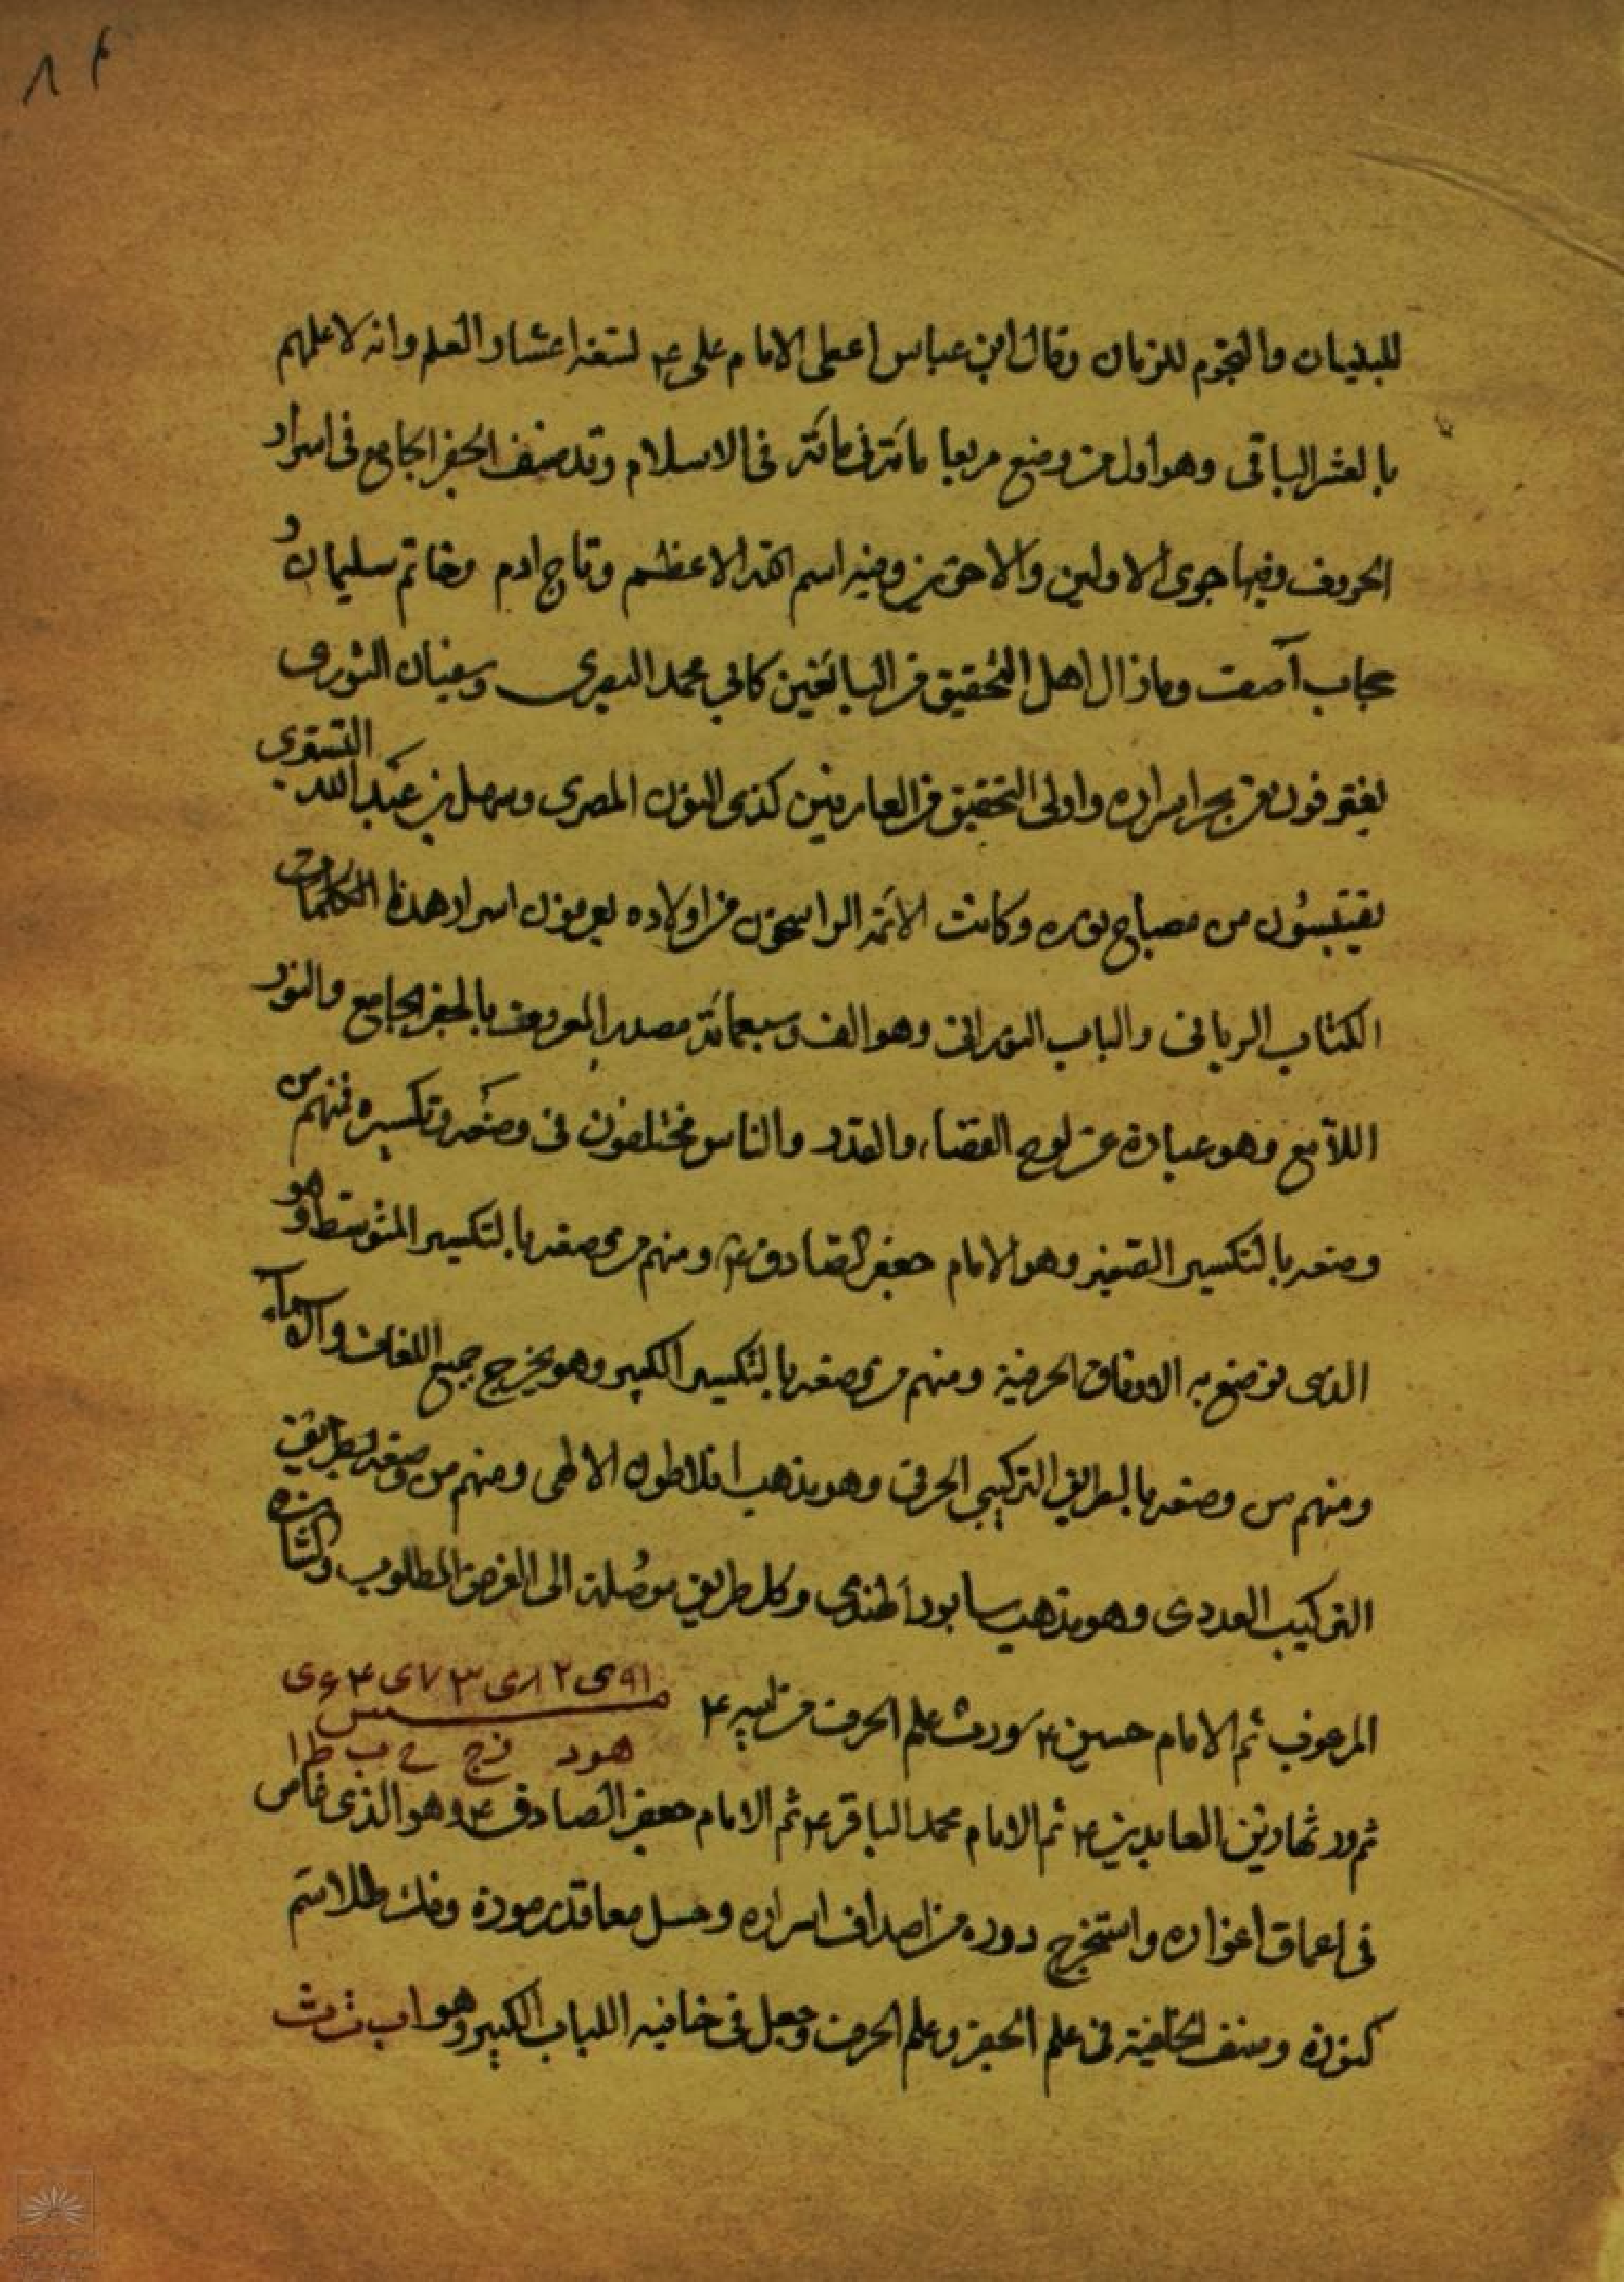 ٨٢
للبلبيان والنجوم للزمان وقال ابن عباس اعطى الامام على ع۴ لتسعة اعشار العلم وانه لاعلمهم
بالعشر الباقى وهو اول من وضع مربعا مائة فى مائة فى الاسلام وقد صنف الجفر الجامع فى اسرار
الحروف وفيها جرى الاولين والاخرين وفيه اسم الله الاعظم وتاج ادم وخاتم سليمان و
حجاب آصف وماذال اهل التحقيق من السابقين كابي محمد البصرى وسفيان الثورى
يغترفون من بحر اسراره واولى التحقيق من العارفين كذى النون المصرى وسهل بن عبد الله التستري
يقتبسُون من مصباح نوره وكانت الائمة الراسخون من اولاده يعرفون اسرار هذا
الكتاب الربانى والباب النورانى وهو الف وسبعمائة مصدر المعروف بالجفر الجامع والنور
اللآمع وهو عبارة عن لوح القضاء والقدر والناس مختلفون فى وضعه وتكسيره فمنهم من
وضعه بالتكسير الصغير وهو الامام جعفر الصادق ع۴ ومنهم من وضعه بالتكسير المتوسط وهو
الذى توضع به الاوفاق الحرفية ومنهم من وضعه بالتكسير الكبير وهو يخرج جميع اللغات والاسمآء
ومنهم من وضعه بالطريق التركيبى الحرفى وهو مذهب افلاطون الالهى ومنهم من وضعه بطريق
التركيب العددى وهو مذهب سابور الهندى وكل طريق موصُلة الى الغرض المطلوب
المرغوب ثم الامام حسين ع۴ ورث علم الحرف من ابيه ع۴
١٩ى ٢٨ى ٣٧ى ۴۶ى
هود
ثم ورثها زين العابدين ع۴ ثم الامام محمد الباقر ع۴ ثم الامام جعفر الصادق ع۴ وهو الذى غاص
فى اعماق اغواره واستخرج درره من اصداف اسراره وحل معاقد رموزه وفك طلاسم
كنوزه وصنف الخافية فى علم الجفر وعلم الحرف وجعل فى خافيه اللباب الكبير وهو اب ت ث